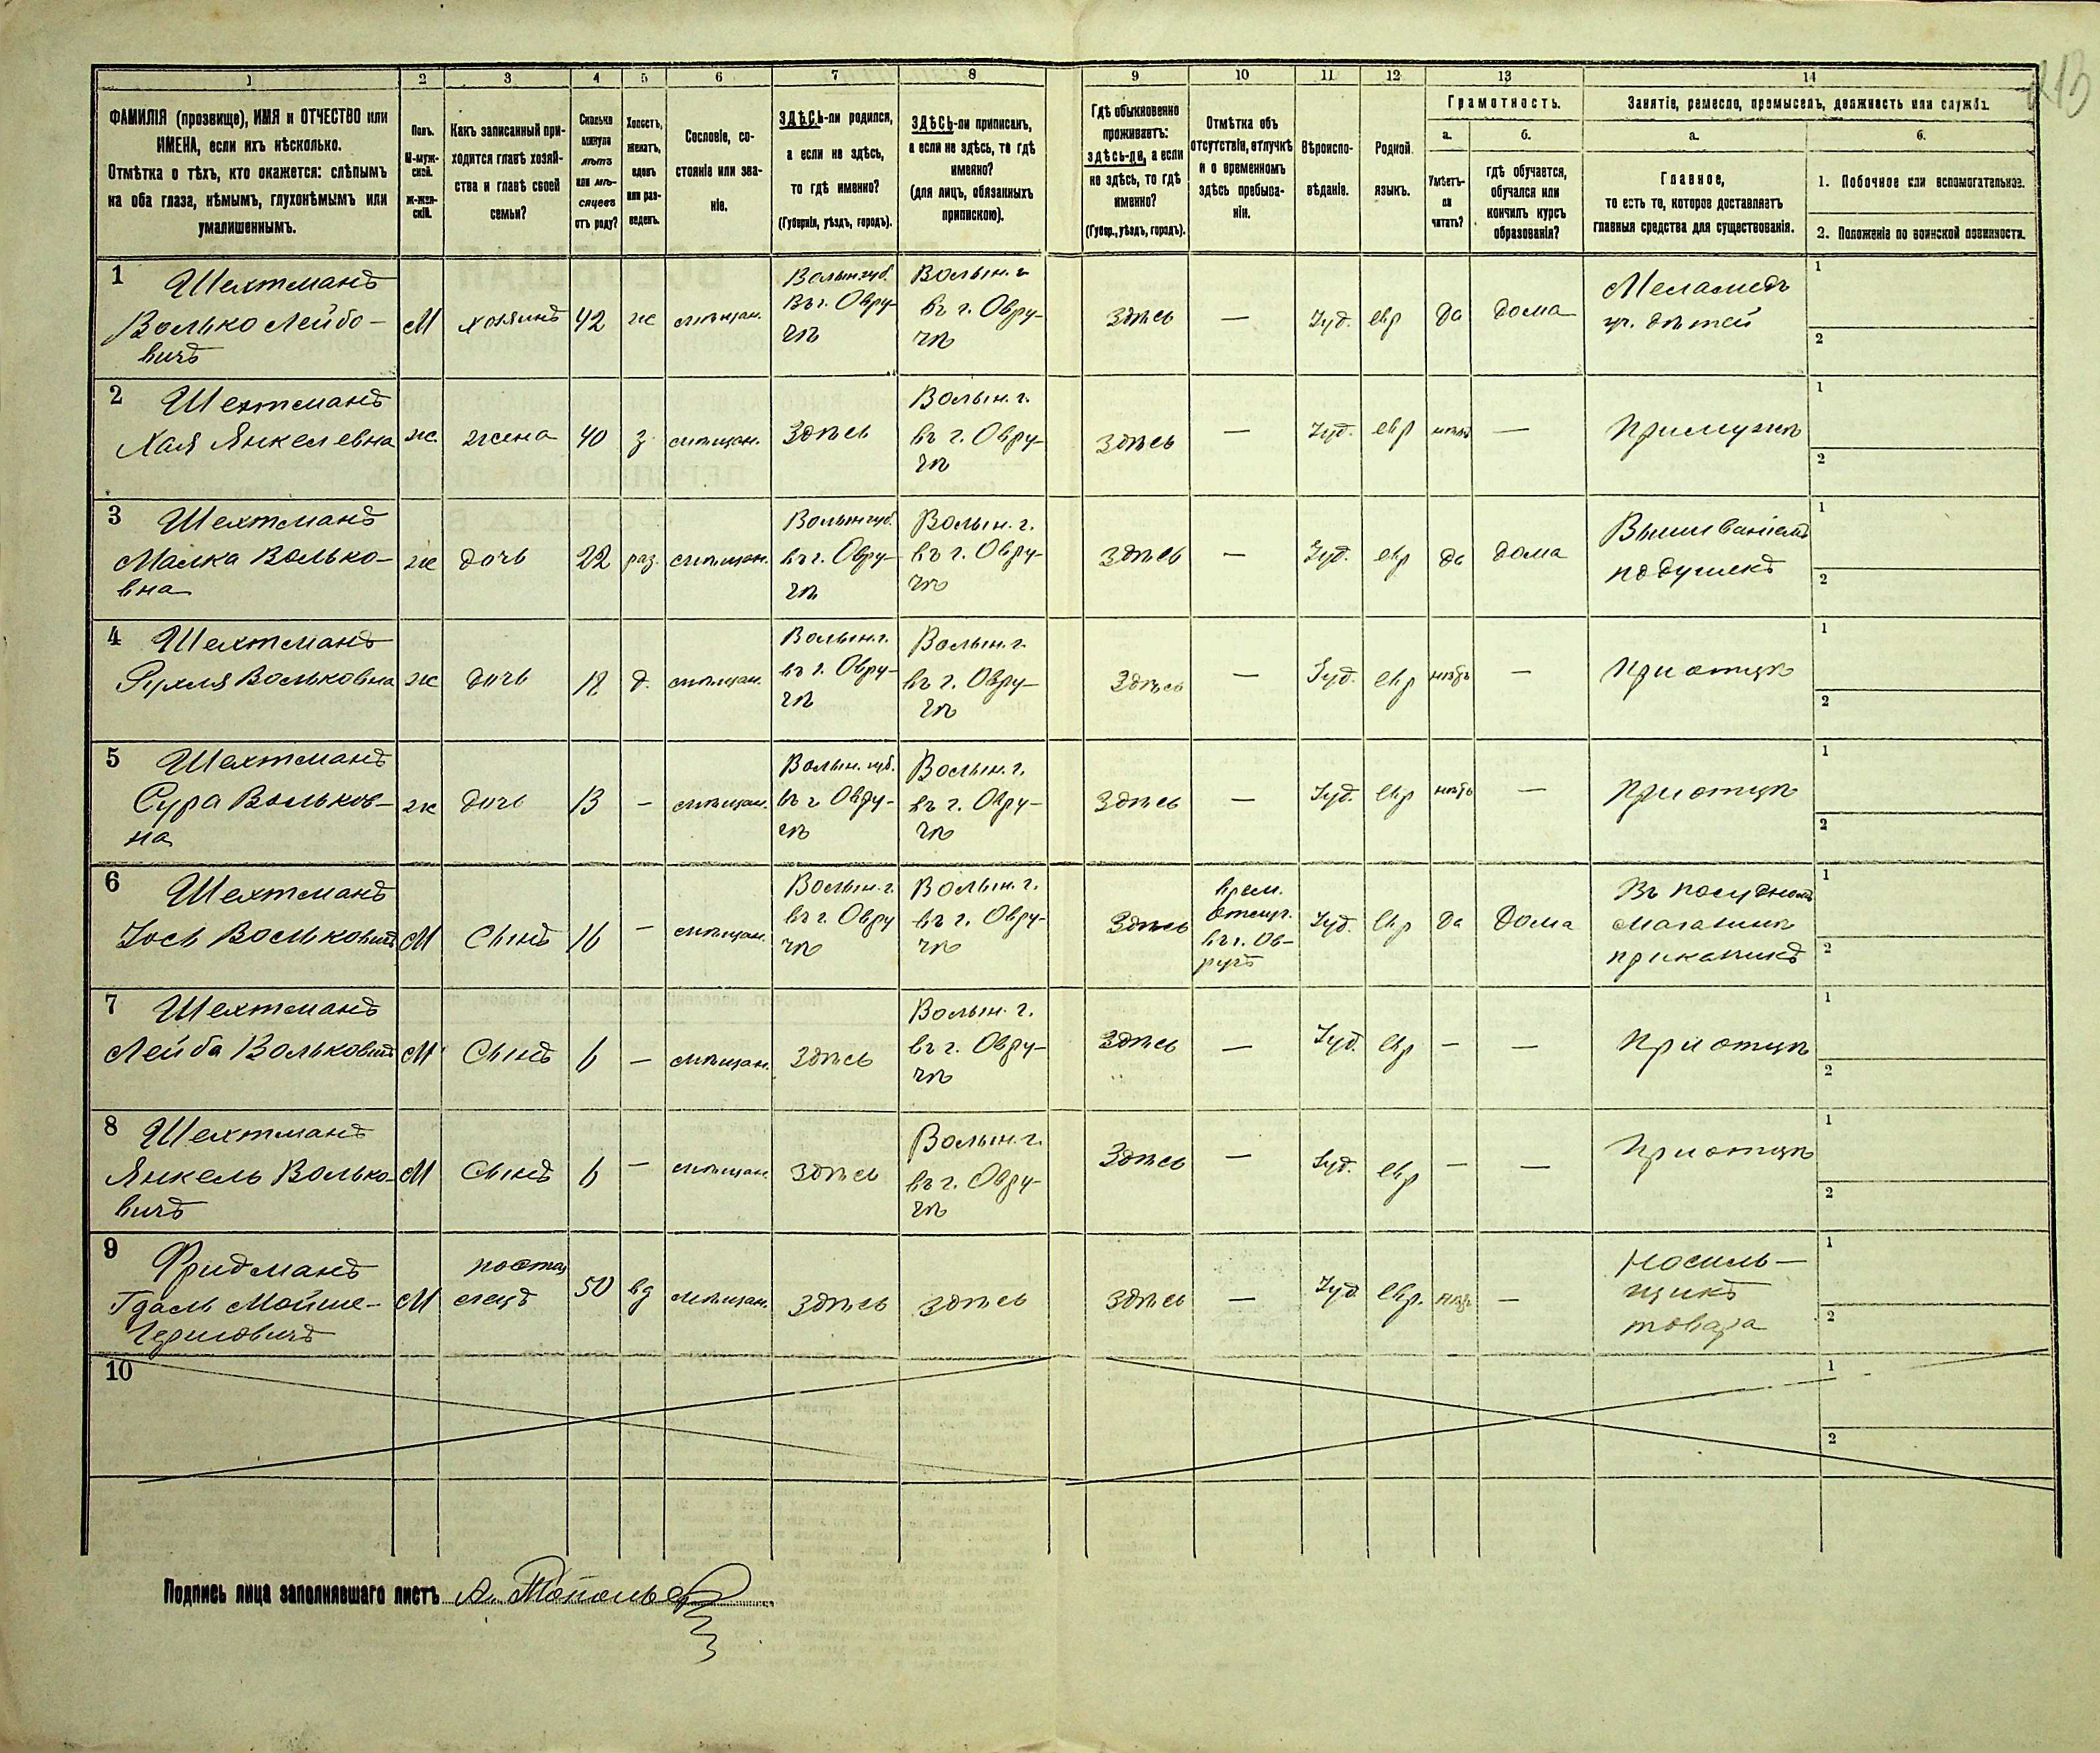 213
1 2 3 4 5 6 7 8 9 10 11 12 13 14
ФАМИЛІЯ (прозвище), ИМЯ и ОТЧЕСТВО или
ИМЕНА, если ихъ нѣсколько.
Отмѣтка о тѣхъ, кто окажется: слѣпымъ
на оба глаза, нѣмымъ, глухонѣмымъ или
умалишеннымъ.
Полъ.
М-муж-
ской.
ж-жен-
скій.
Какъ записанный при-
ходится главѣ хозяй-
ства и главѣ своей
семьи?
Сколько
минуло
лѣтъ
или мѣ-
сяцевъ
отъ роду?
Холостъ,
женатъ,
вдовъ
или раз-
веденъ.
Сословіе, со-
стояніе или зва-
ніе.
ЗДѢСЬ-ли родился,
а если не здѣсь,
то гдѣ именно?
(Губернія, уѣздъ, городъ).
ЗДѢСЬ-ли приписанъ,
а если не здѣсь, то гдѣ
именно?
(для лицъ, обязанныхъ
припискою).
Гдѣ обыкновенно
проживаетъ:
здѣсь-ли, а если
не здѣсь, то гдѣ
именно?
(Губер., уѣздъ, городъ).
Отмѣтка объ
отсутствіи, отлучкѣ
и о временномъ
здѣсь пребыва-
ніи.
Вѣроиспо-
вѣданіе.
Родной
языкъ.
Грамотность.
а.
Умѣетъ-
ли
читать?
б.
гдѣ обучается,
обучался или
кончилъ курсъ
образованія?
Занятіе, ремесло, промыселъ, должность или служба.
а.
Главное,
то есть то, которое доставляетъ
главныя средства для существованія.
б.
1. Побочное или вспомогательное.
2. Положеніе по воинской повинности.
1 Шехтманъ
Волько Лейбо-
вичъ
М хозяинъ 42 ж мѣщан.
Волын. губ.
въ г. Овру-
чѣ
Волын. г.
въ г. Овру-
чѣ
здѣсь — Іуд. евр да дома
Меламедъ
уч. дѣтей
1
2
2 Шехтманъ
Хая Янкелевна ж. жена 40 з. мѣщан. здѣсь
Волын. г.
въ г. Овру-
чѣ
здѣсь — Іуд. евр нѣтъ —
при мужѣ
1
2
3 Шехтманъ
Малка Волько-
вна
ж дочь 22 раз. мѣщан.
Волын губ.
въ г. Овру-
чѣ
Волын. г.
въ г. Овру-
чѣ
здѣсь — Іуд. евр да дома
Вышиваніемъ
подушекъ
1
2
4 Шехтманъ
Рухля Вольковна ж дочь д. мѣщан.
Волын. г.
въ г. Овру-
чѣ
Волын. г.
въ г. Овру-
чѣ
здѣсь — Іуд. евр нѣтъ —
при отцѣ
1
2
5 Шехтманъ
Сура Вольков-
на
ж дочь 13 — мѣщан.
Волын. губ.
въ г. Овру-
чѣ
Волын. г.
въ г. Овру-
чѣ
здѣсь — Іуд. евр нѣтъ —
при отцѣ
1
2
6 Шехтманъ
Іось Вольковичъ М Сынъ 16 — мѣщан.
Волын. г.
въ г. Овру
чѣ
Волын. г.
въ г. Овру-
чѣ
здѣсь
врем.
отсут.
въ г. Ов-
ручъ
Іуд. евр да дома
Въ посудномъ
магазинѣ
приказчикъ
1
2
7 Шехтманъ
Лейба Вольковичъ М Сынъ 6 — мѣщан. здѣсь
Волын. г.
въ г. Овру-
чѣ
здѣсь — Іуд. евр — —
при отцѣ
1
2
8 Шехтманъ
Янкель Волько-
вичъ
М Сынъ 6 — мѣщан. здѣсь
Волын г.
въ г. Овру-
чѣ
здѣсь — Іуд. евр — —
при отцѣ
1
2
9 Фридманъ
Гдаль Мойше-
М
постоя
лецъ
50 вд мѣщан. здѣсь здѣсь
здѣсь — Іуд. евр. нѣтъ —
Носиль-
щикъ
товара
1
2
10
1
2
Подпись лица заполнявшаго листъ